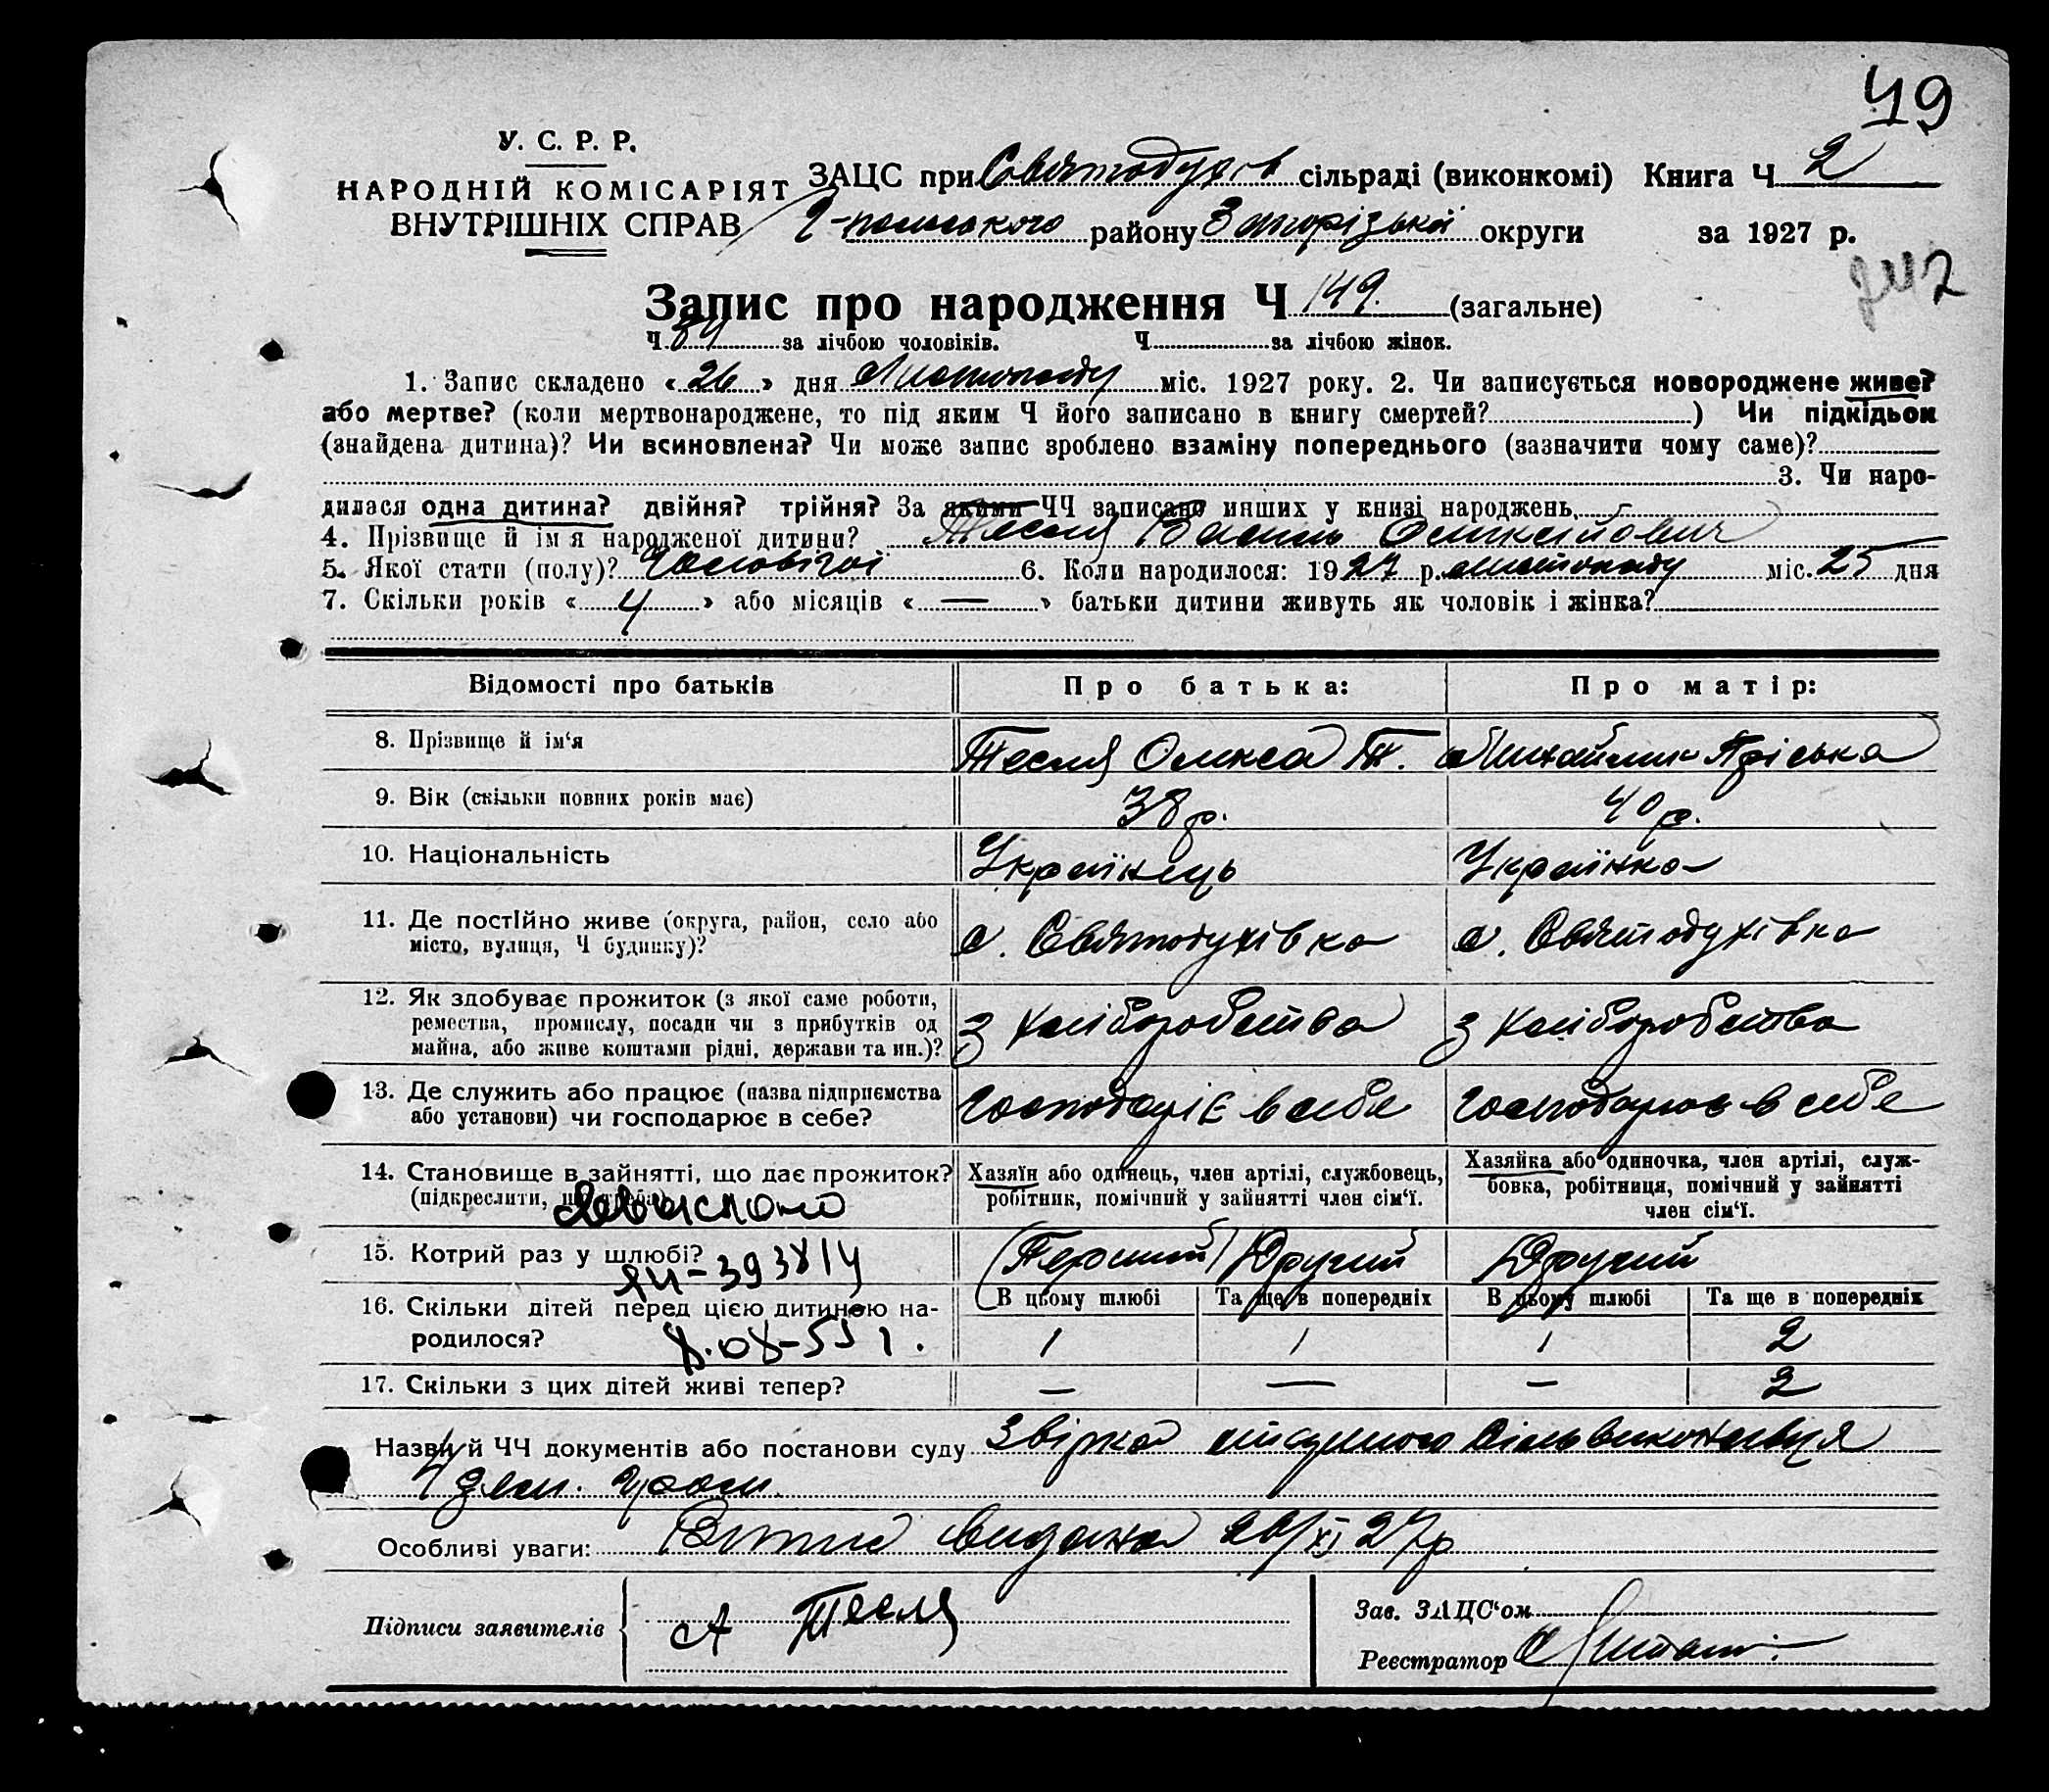 49
У. С. Р. Р.
НАРОДНІЙ КОМІСАРІЯТ
ВНУТРІШНІХ СПРАВ
ЗАЦС при Святодухів сільраді (виконкомі) Книга Ч 2
району Запорізької округи за 1927 р.
Запис про народження Ч 149. (загальне)
Ч. 84 за лічбою чоловіків. Ч. за лічбою жінок.
1. Запис складено « 26 » дня Листопаду міс. 1927 року. 2. Чи записується новороджене живе?
або мертве? (коли мертвонароджене, то під яким Ч його записано в книгу смертей? ) Чи підкідьок
(знайдена дитина)? Чи всиновлена? Чи може запис зроблено взаміну попереднього (зазначити чому саме)?
3. Чи наро-
дилася одна дитина? двійня? трійня? За якими ЧЧ записано инших у книзі народжень
4. Прізвище й ім я народженої дитини? Тесля Василь Олексійович
5. Якої стати (полу)? Чоловічої 6. Коли народилося: 1927 р. листопаду міс. 25 дня
7. Скільки років « 4 » або місяців « — » батьки дитини живуть як чоловік і жінка?
Відомості про батьків Про батька: Про матір:
8. Прізвище й ім‘я Тесля Олекса Т. Михайлик Пріська
9. Вік (скільки повних років має) 38 р. 40 р.
10. Національність Українець Українка
11. Де постійно живе (округа, район, село або
місто, вулиця, Ч будинку)? с. Святодухівка с. Святодухівка
12. Як здобуває прожиток (з якої саме роботи,
ремества, промислу, посади чи з прибутків од
майна, або живе коштами рідні, держави та ин.)? З хліборобства З хліборобства
13. Де служить або працює (назва підприємства
або установи) чи господарює в себе? господаріє в себе господарює в себе
14. Становище в зайнятті, що дає прожиток?
(підкреслити, що треба)
Хазяїн або одинець, член артілі, службовець,
робітник, помічний у зайнятті член сім‘ї.
Хазяйка або одиночка, член артілі, служ-
бовка, робітниця, помічний у зайнятті
член сім‘ї.
15. Котрий раз у шлюбі? (Перший) Другий Другий
ЯЧ-393814
16. Скільки дітей перед цією дитиною на-
родилося?
В цьому шлюбі Та ще в попередніх В цьому шлюбі Та ще в попередніх
1 1 1 2
17. Скільки з цих дітей живі тепер? — — — 2
Назви й ЧЧ документів або постанови суду Звірка
Особливі уваги: Витяг видано 26/XI 27р
Підписи заявителів А Тесля
Зав. ЗАЦС‘ом
Реєстратор